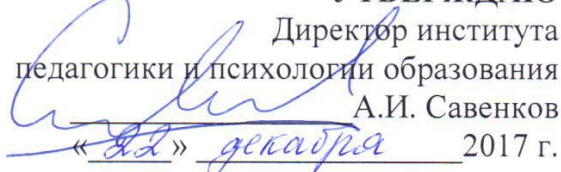 УТВЕРЖДАЮ
Директор института
педагогики и психологии образования
А.И. Савенков
«22» декабря 2017 г.